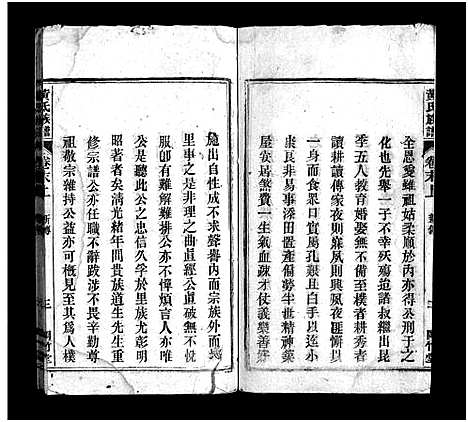 黃氏族譜
卷末上
新傳
全恩愛雖祖姑柔順於內亦得公刑于之
化也先舉一子不幸殀殤遺諸叔釋出長
季五人教育婚娶無非以身作模耕秀者
讀耕讀傳家夜則寐夙則興夙夜匪懈以
一身而食課口實屬孔艱且白手以歷小
康良非易易添田置產備勞半生精神築
屋安居煞費一生氣血疎才仗義樂善好
施出自性成不求聲譽內而宗族外而
里非事之是非理之曲直經公直破無不悅
服卽有難解難排公亦不憚煩言人亦唯
公是聽此公之忠信久孚於里族尤彰明
昭著者矣清光緒年間貴族道生先生重
修宗譜公亦任職不辭跋涉不辭辛勤尊
祖敬宗維持公益亦可槪見至其爲人樸
黃氏族譜
卷末上
新傳
三